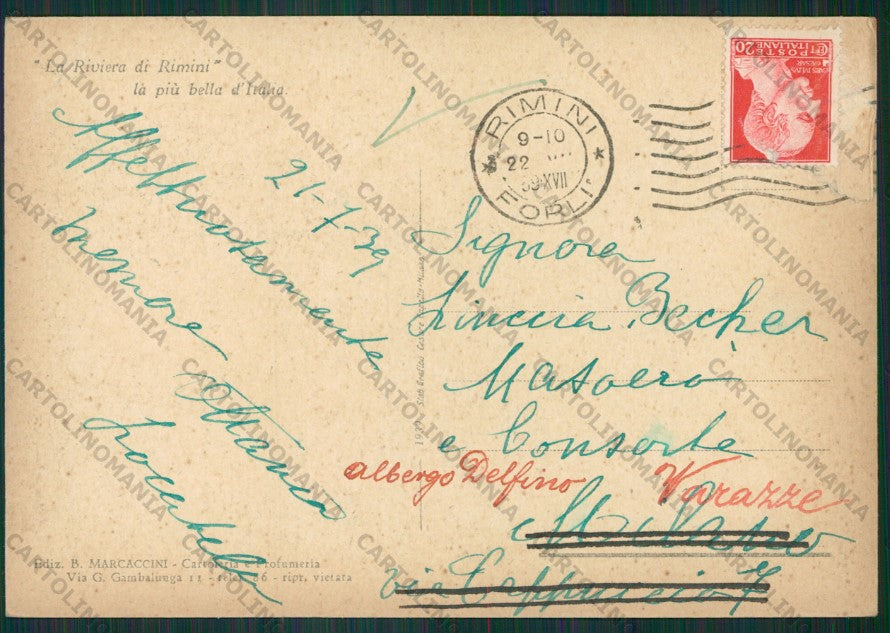 "La Riviera di Rimini"
la più bella d'Italia.
21-7-39
Affettuosamente
memore
Maria
Ediz. B. MARCACCINI - Cartoleria e Profumeria
Via G. Gambalunga 11 - telef. 86 - ript. vietata
RIMINI
9-10
22
39 XVII
FORLI'
POSTE
ITALIANE
CT 20
Signora
Linccia Becher
Masoero
e Consorte
Albergo Delfino Varazze
Milano
via Cappuccio 7
CARTOLINOMANIA